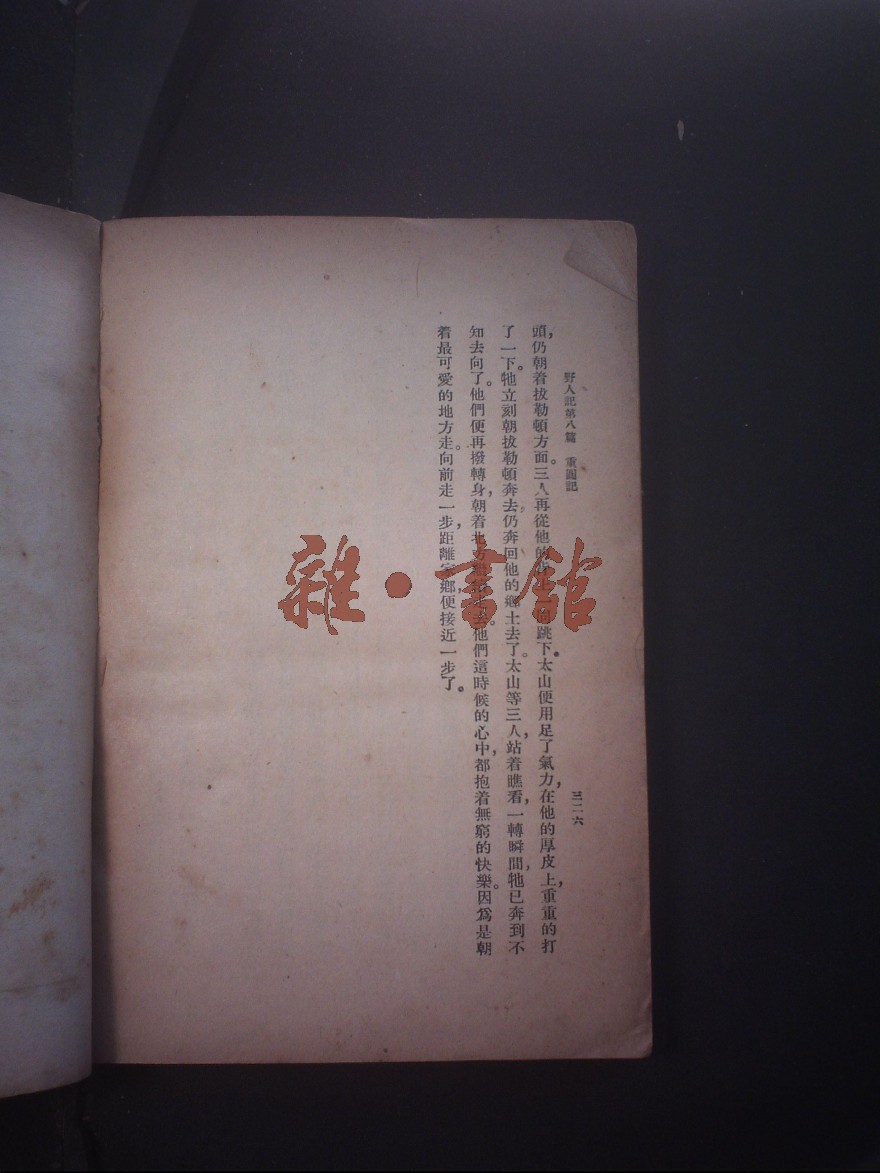 野人記第八篇 重圓記
三二六
頭，仍朝着拔勒頓方面。三人再從他的跳下。太山便用足了氣力，在他的厚皮上，重重的打
了一下。牠立刻朝拔勒頓奔去，仍奔回他的鄉土去了。太山等三人，站着瞧看，一轉瞬間，牠已奔到不
知去向了。他們便再撥轉身，朝着北方去。他們這時候的心中，都抱着無窮的快樂。因爲是朝
着最可愛的地方走。向前走一步，距離家鄉，便接近一步了。
雜·書館